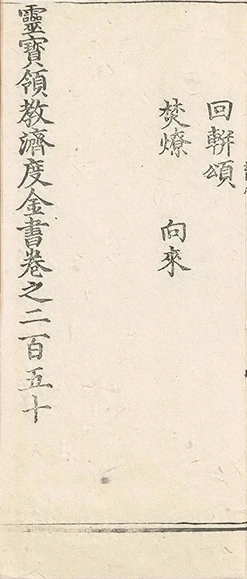 回軿頌
焚燎　向來
靈寶領教濟度金書卷之二百五十